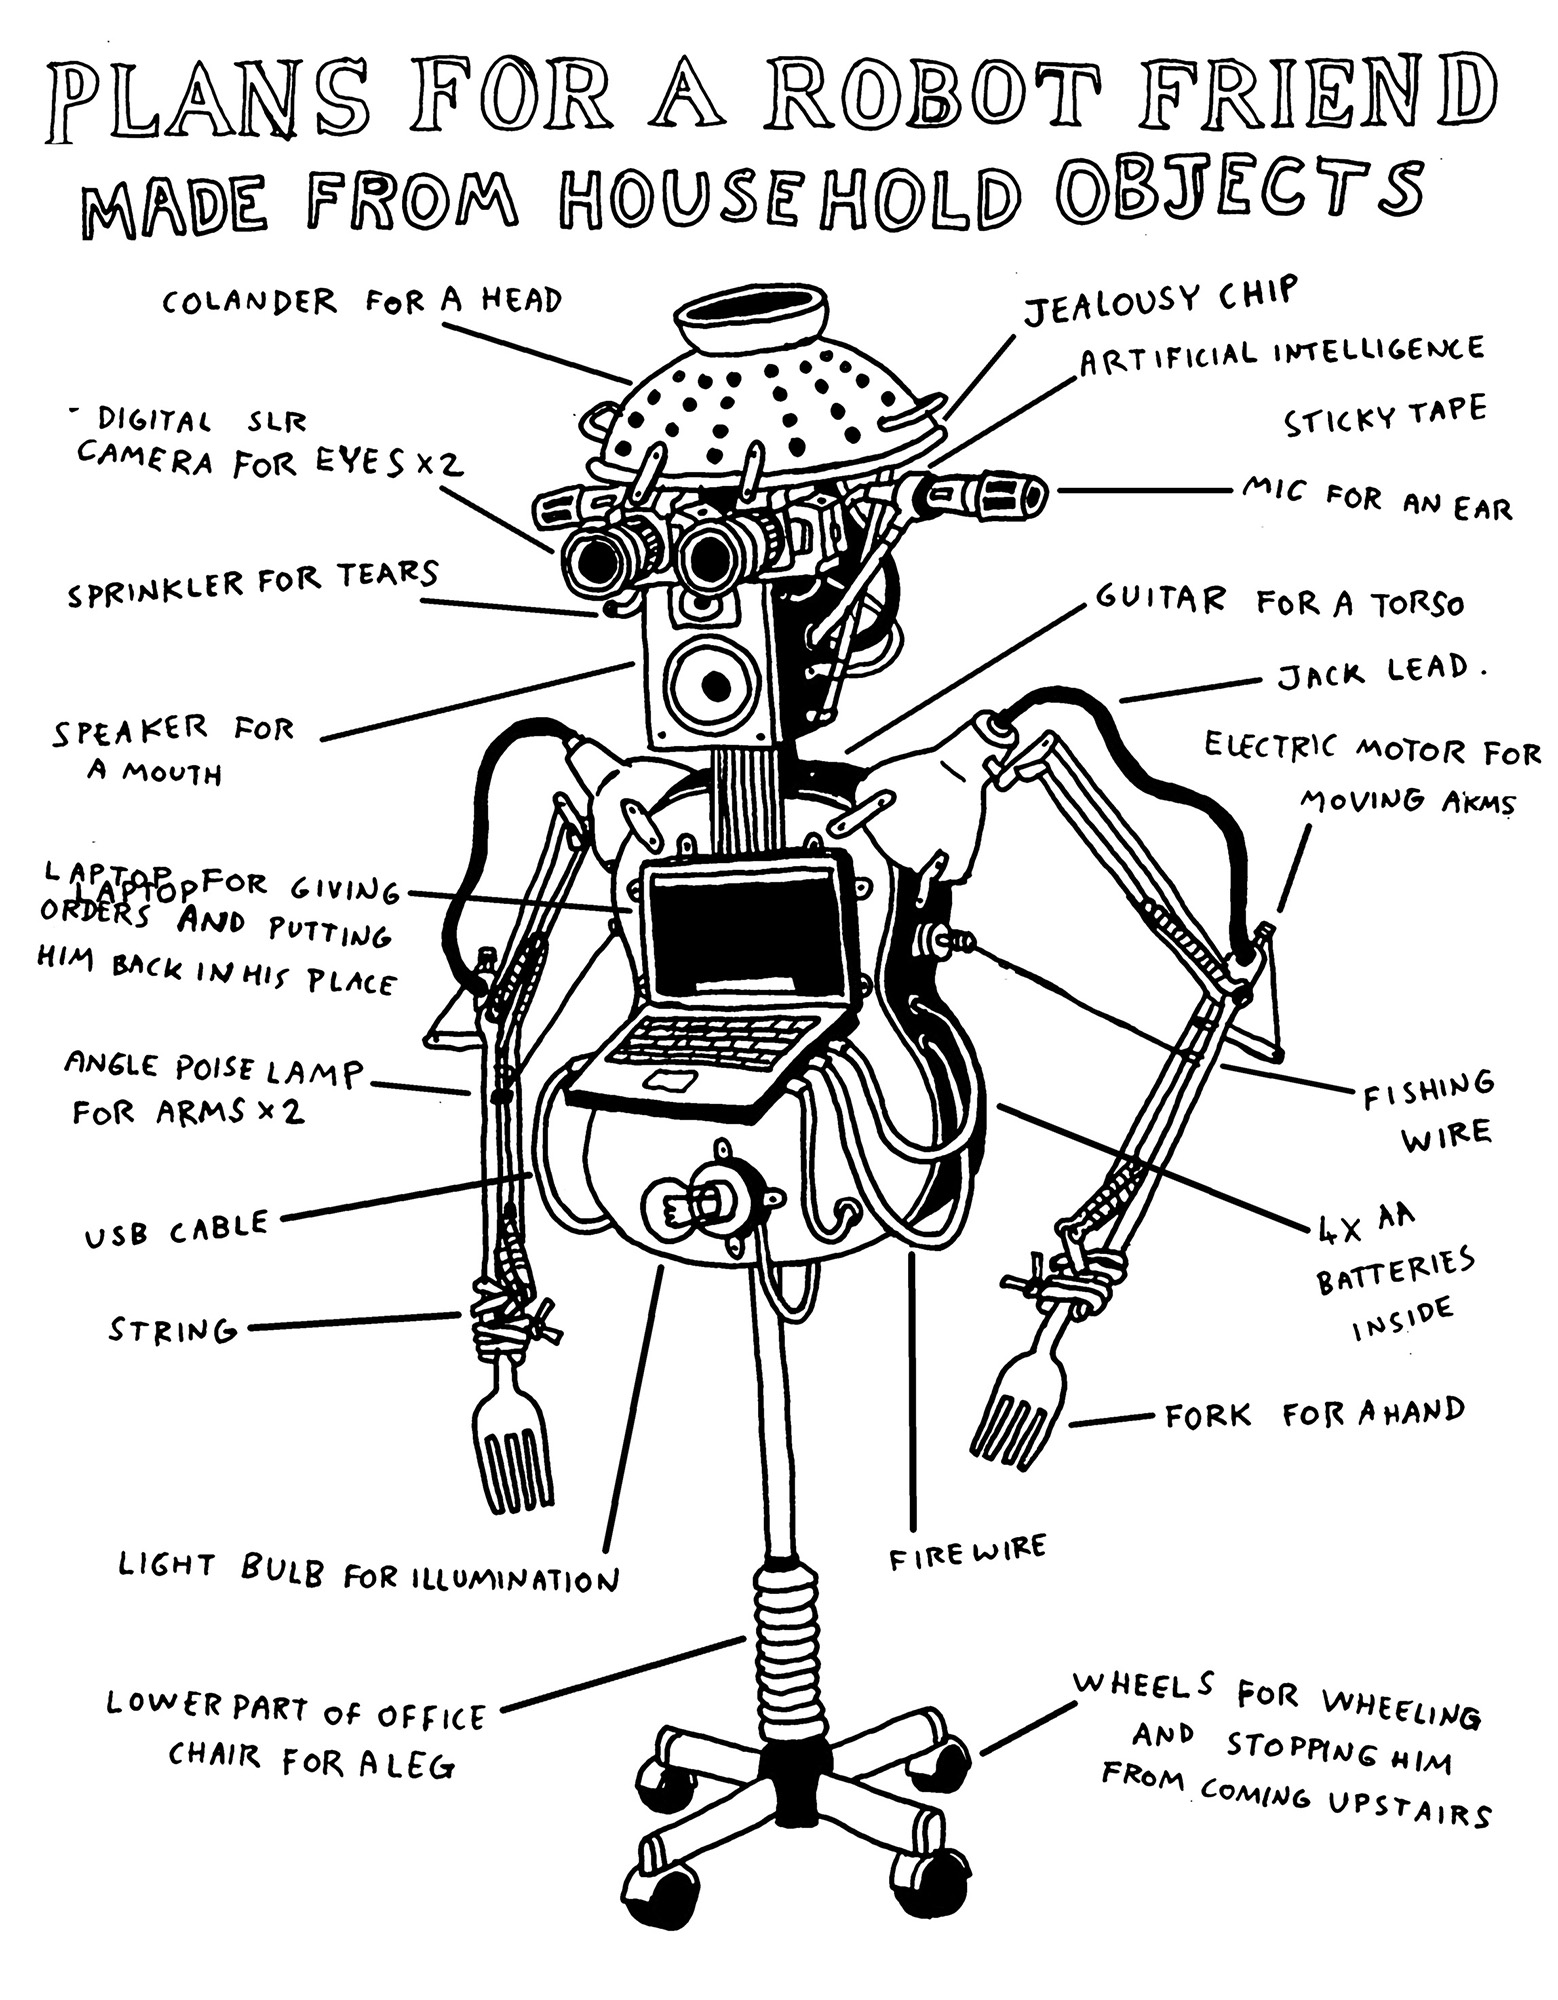 PLANS FOR A ROBOT FRIEND
MADE FROM HOUSEHOLD OBJECTS
COLANDER FOR A HEAD
- DIGITAL SLR
CAMERA FOR EYES x2
SPRINKLER FOR TEARS
SPEAKER FOR
A MOUTH
LAPTOP FOR GIVING
LAPTOP
ORDERS AND PUTTING
HIM BACK IN HIS PLACE
ANGLE POISE LAMP
FOR ARMS x2
USB CABLE
STRING
LIGHT BULB FOR ILLUMINATION
LOWER PART OF OFFICE
CHAIR FOR A LEG
JEALOUSY CHIP
ARTIFICIAL INTELLIGENCE
STICKY TAPE
MIC FOR AN EAR
GUITAR FOR A TORSO
JACK LEAD.
ELECTRIC MOTOR FOR
MOVING ARMS
FISHING
WIRE
4X AA
BATTERIES
INSIDE
FORK FOR A HAND
FIREWIRE
WHEELS FOR WHEELING
AND STOPPING HIM
FROM COMING UPSTAIRS